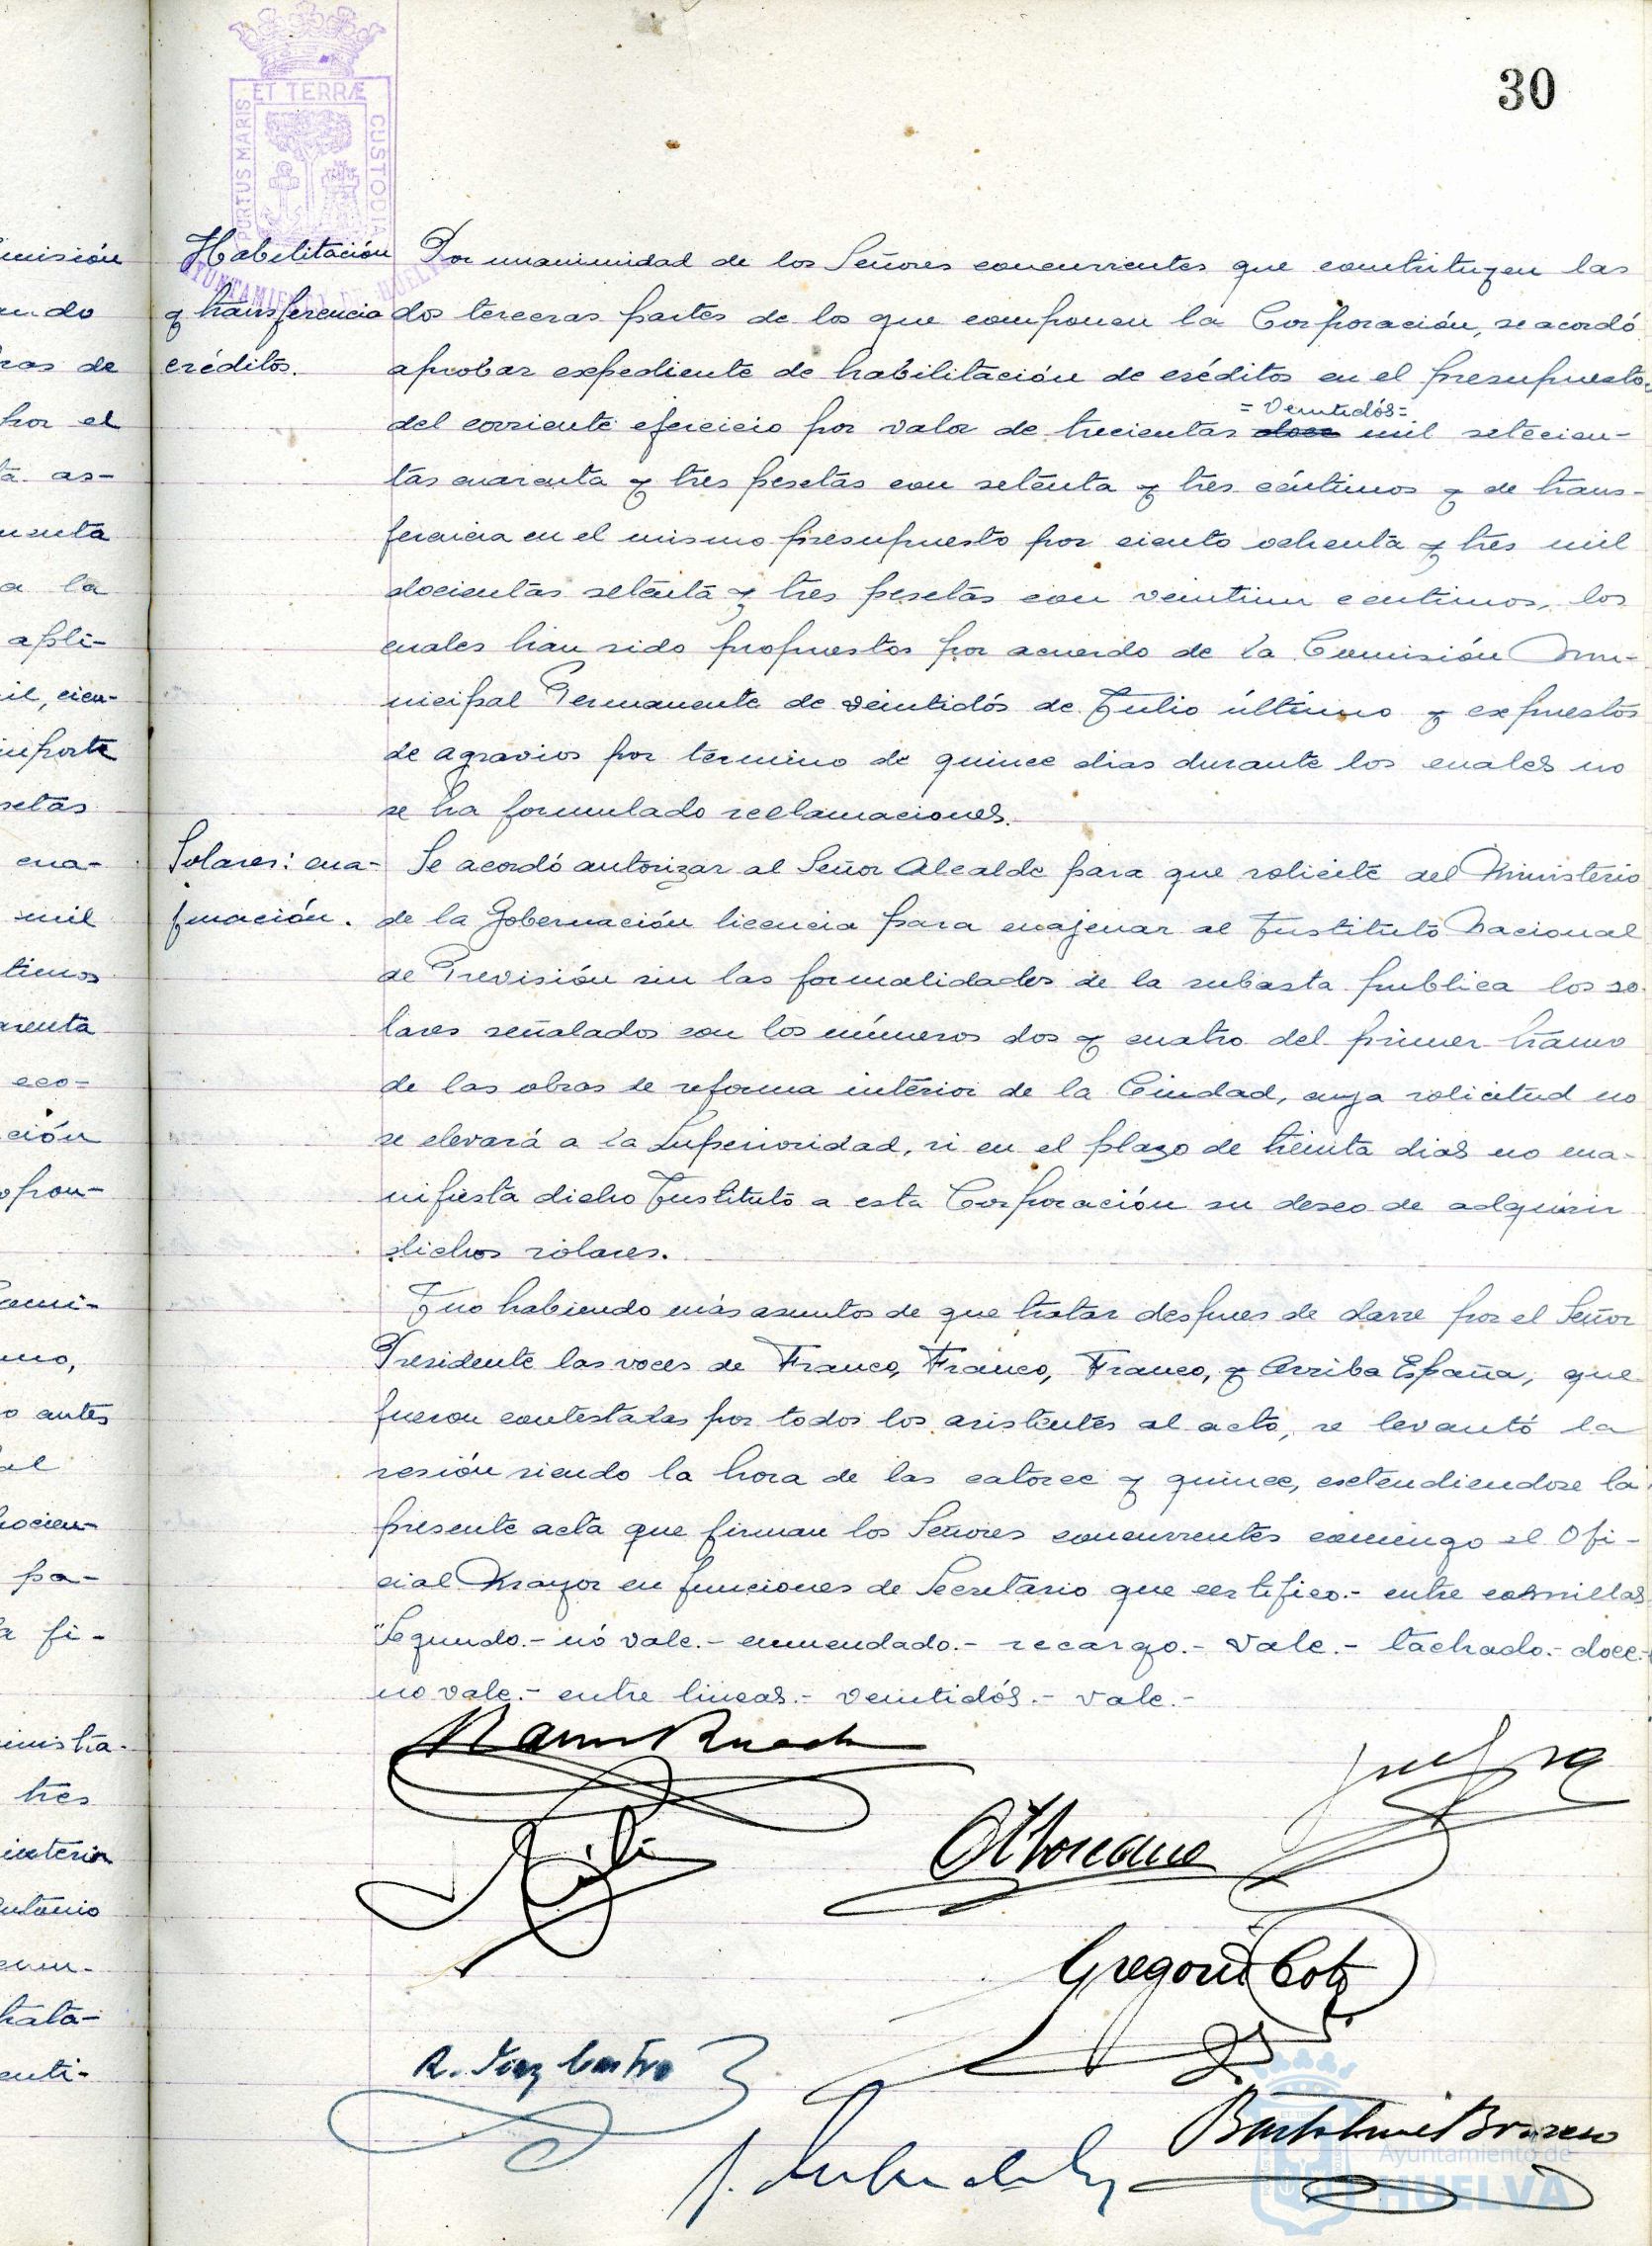 30
ET TERRÆ
PORTUS MARIS
CUSTODIA
AYUNTAMIENTO DE HUELVA
Habilitación
y transferencia
créditos.
Por unanimidad de los Señores concurrentes que constituyen las
dos terceras partes de los que componen la Corporación, se acordó
aprobar expediente de habilitación de créditos en el presupuesto
= Veintidós =
del corriente ejercicio por valor de trecientas doce mil setecien-
tas cuarenta y tres pesetas con setenta y tres céntimos y de trans-
ferencia en el mismo presupuesto por ciento ochenta y tres mil
docientas setenta y tres pesetas con veintiun centimos, los
cuales han sido propuestos por acuerdo de la Comisión Mu-
nicipal Permanente de veintidós de Julio último y expuestos
de agravios por termino de quince dias durante los cuales no
se ha formulado reclamaciones.
Solares: ena-
jenación.
Se acordó autorizar al Señor Alcalde para que solicite del Ministerio
de la Gobernación licencia para enajenar al Instituto Nacional
de Previsión sin las formalidades de la subasta publica los so-
lares señalados con los números dos y cuatro del primer tramo
de las obras de reforma interior de la Ciudad, cuya solicitud no
se elevará a la Superioridad, si en el plazo de treinta dias no ma-
nifiesta dicho Instituto a esta Corporación su deseo de adquirir
dichos solares.
Y no habiendo más asuntos de que tratar despues de darse por el Señor
Presidente las voces de Franco, Franco, Franco, y Arriba España, que
fueron contestadas por todos los asistentes al acto, se levantó la
sesión siendo la hora de las catorce y quince, extendiendose la
presente acta que firman los Señores concurrentes conmigo el Ofi-
cial Mayor en funciones de Secretario que certifico.- entre comillas
"Segundo.- nó vale.- enmendado.- recargo.- vale.- tachado.- doce.-
no vale.- entre lineas.- veintidós.- vale.-
Gregorio
R. Diaz Castro
Ayuntamiento de
HUELVA